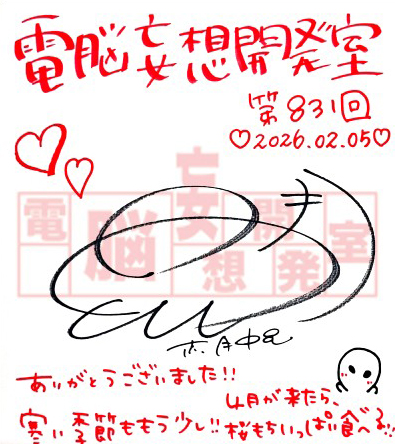 電脳妄想開発室
第831回
♡2026.02.05♡
電脳妄想開発室
ありがとうございました!!
寒い季節ももう少し!!
4月が来たら、
桜もちいっぱい食べる!!